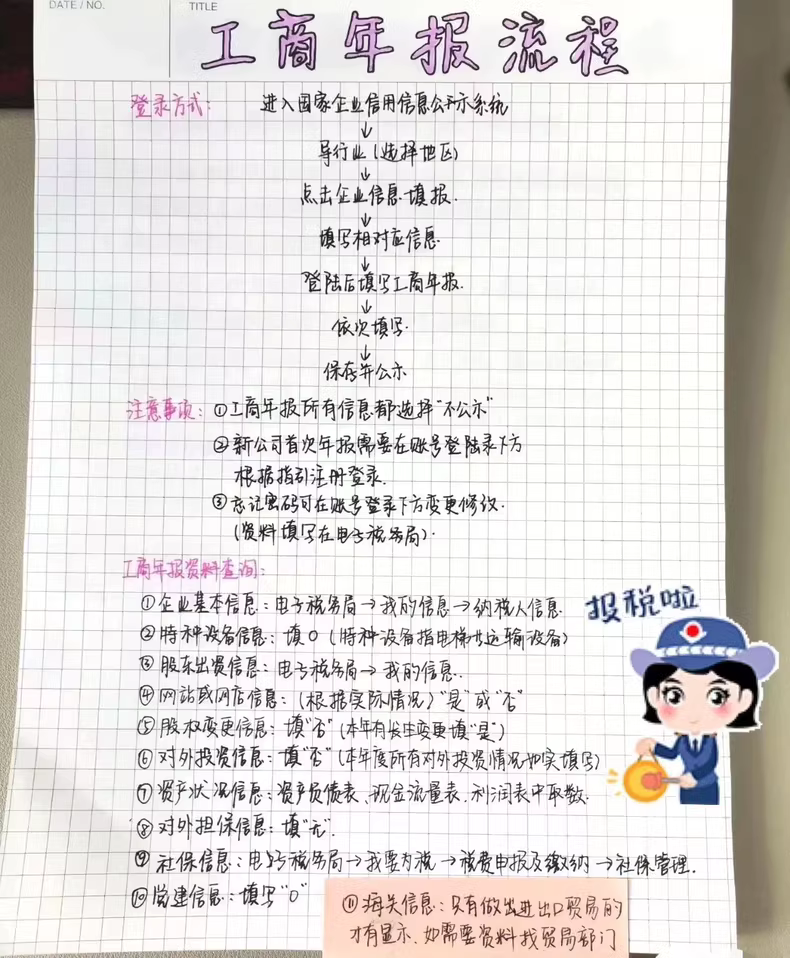 DATE / NO.
TITLE
工商年报流程
登录方式：
进入国家企业信用信息公开示系统
↓
导行业（选择地区）
↓
点击企业信息填报.
↓
填写相对应信息
↓
登陆后填写工商年报.
↓
依次填写.
↓
保存并公示
注意事项：①工商年报所有信息都选择"不公示"
②新公司首次年报需要在账号登陆录下方
根据指引注册登录.
③忘记密码可在账号登录下方变更修改.
(资料填写在电子税务局).
工商年报资料查询：
①企业基本信息：电子税务局→我的信息→纳税人信息.
②特种设备信息：填0（特种设备指电梯 运输设备）
③股东出资信息：电子税务局→我的信息.
④网站或网店信息：(根据实际情况)"是"或"否"
⑤股权变更信息：填"否"(本年有 变更填"是")
⑥对外投资信息：填"否"(本年度所有对外投资情况如实填写)
⑦资产状况信息：资产负债表、现金流量表、利润表中取数.
⑧对外担保信息：填"无".
⑨社保信息：电子税务局→我要办税→税费申报及缴纳→社保管理.
⑩党建信息：填写"0"
报税啦
⑪海关信息：只有做出进出口贸易的
才有显示、如需要资料找贸易部门